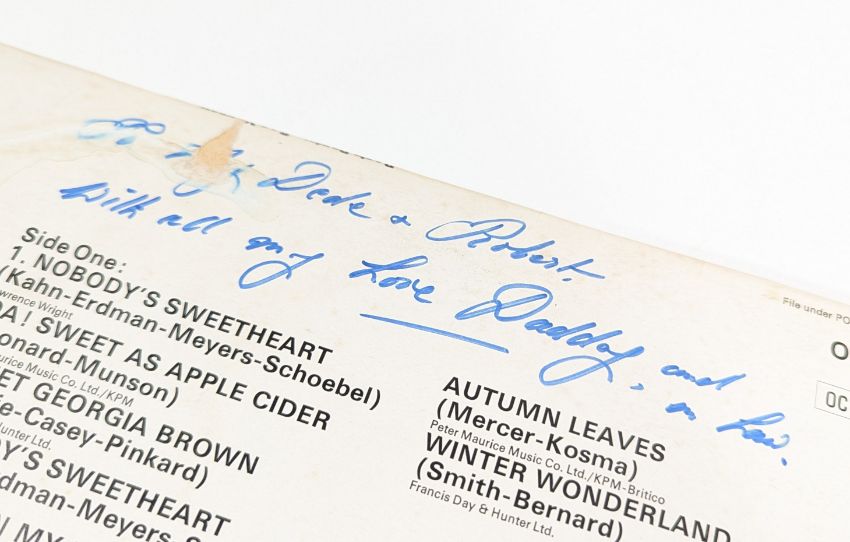 To my Dede & Robert.
With all my Love Daddy, and
in Law.
Side One:
1. NOBODY'S SWEETHEART
(Kahn-Erdman-Meyers-Schoebel)
awrence Wright
DA! SWEET AS APPLE CIDER
eonard-Munson)
urice Music Co. Ltd./KPM
ET GEORGIA BROWN
ie-Casey-Pinkard)
Hunter Ltd.
DY'S SWEETHEART
rdman-Meyers-S
N MY
File under PO
O
OC
AUTUMN LEAVES
(Mercer-Kosma)
Peter Maurice Music Co. Ltd./KPM-Britico
WINTER WONDERLAND
(Smith-Bernard)
Francis Day & Hunter Ltd.